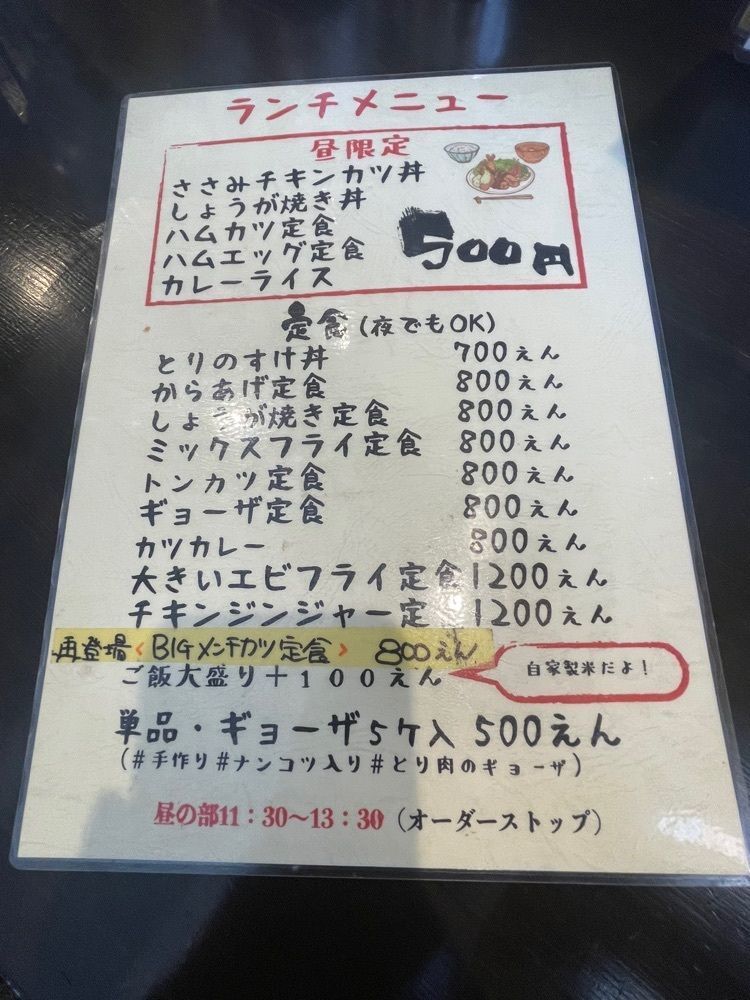 ランチメニュー
昼限定
ささみチキンカツ丼
しょうが焼き丼
ハムカツ定食
ハムエッグ定食
カレーライス
500円
定食(夜でもOK)
とりのすけ丼 700えん
からあげ定食 800えん
しょうが焼き定食 800えん
ミックスフライ定食 800えん
トンカツ定食 800えん
ギョーザ定食 800えん
カツカレー 800えん
大きいエビフライ定食 1200えん
チキンジンジャー定 1200えん
再登場〈BIGメンチカツ定食〉 800えん
ご飯大盛り+100えん
自家製米だよ!
単品・ギョーザ5ケ入 500えん
(#手作り#ナンコツ入り#とり肉のギョーザ)
昼の部11:30〜13:30(オーダーストップ)